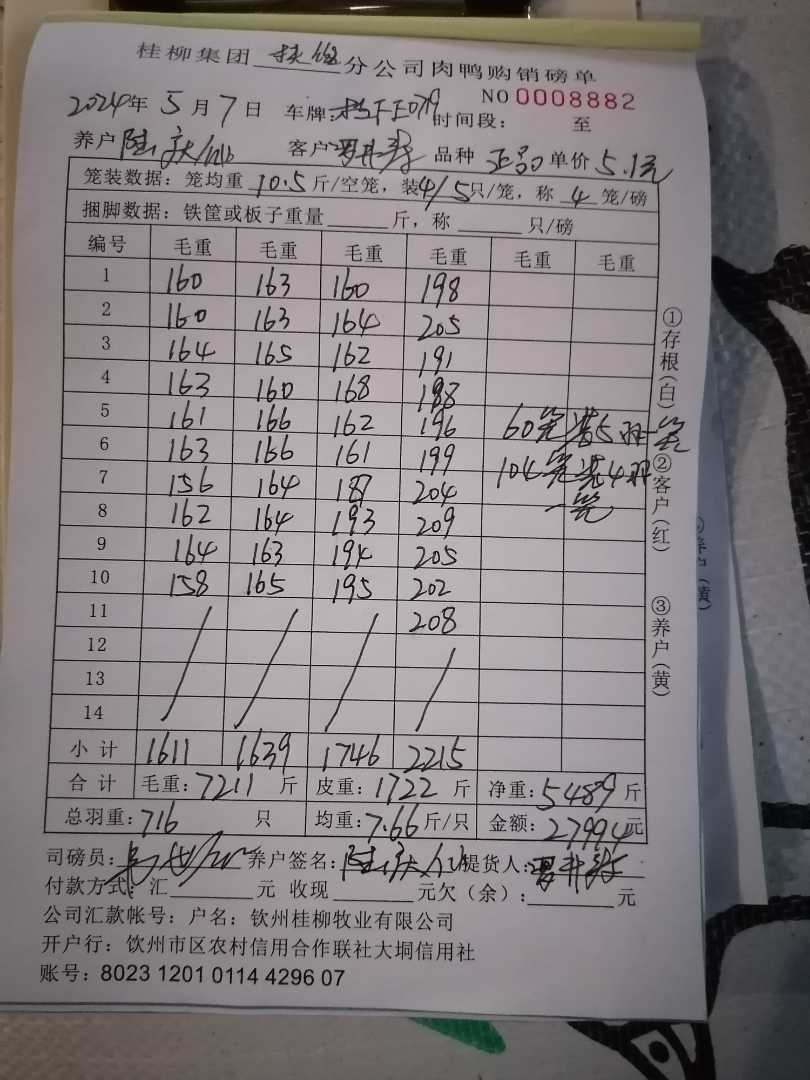 桂柳集团扶绥分公司肉鸭购销磅单
NO 0008882
2024年5月7日 车牌: 时间段: 至
养户 陆庆 客户 品种 正品 单价 5.1元
笼装数据: 笼均重 10.5 斤/空笼, 装4/5只/笼, 称 4 笼/磅
捆脚数据: 铁筐或板子重量______斤, 称______只/磅
编号 毛重 毛重 毛重 毛重 毛重 毛重
1 160 163 160 198
2 160 163 164 205
3 164 165 162 191
4 163 160 168 188
5 161 166 162 196 60笼装5羽一笼
6 163 166 161 199 104笼装4羽一笼
7 156 164 187 204
8 162 164 193 209
9 164 163 194 205
10 158 165 195 202
11 208
12
13
14
小计 1611 1639 1746 2215
合计 毛重: 7211 斤 皮重: 1722 斤 净重: 5489 斤
总羽重: 716 只 均重: 7.66 斤/只 金额: 27994元
司磅员: 养户签名: 陆庆 提货人:
付款方式: 汇______元 收现______元欠(余):______元
公司汇款帐号: 户名: 钦州桂柳牧业有限公司
开户行: 钦州市区农村信用合作联社大垌信用社
账号: 8023 1201 0114 4296 07
①存根(白)
②客户(红)
③养户(黄)